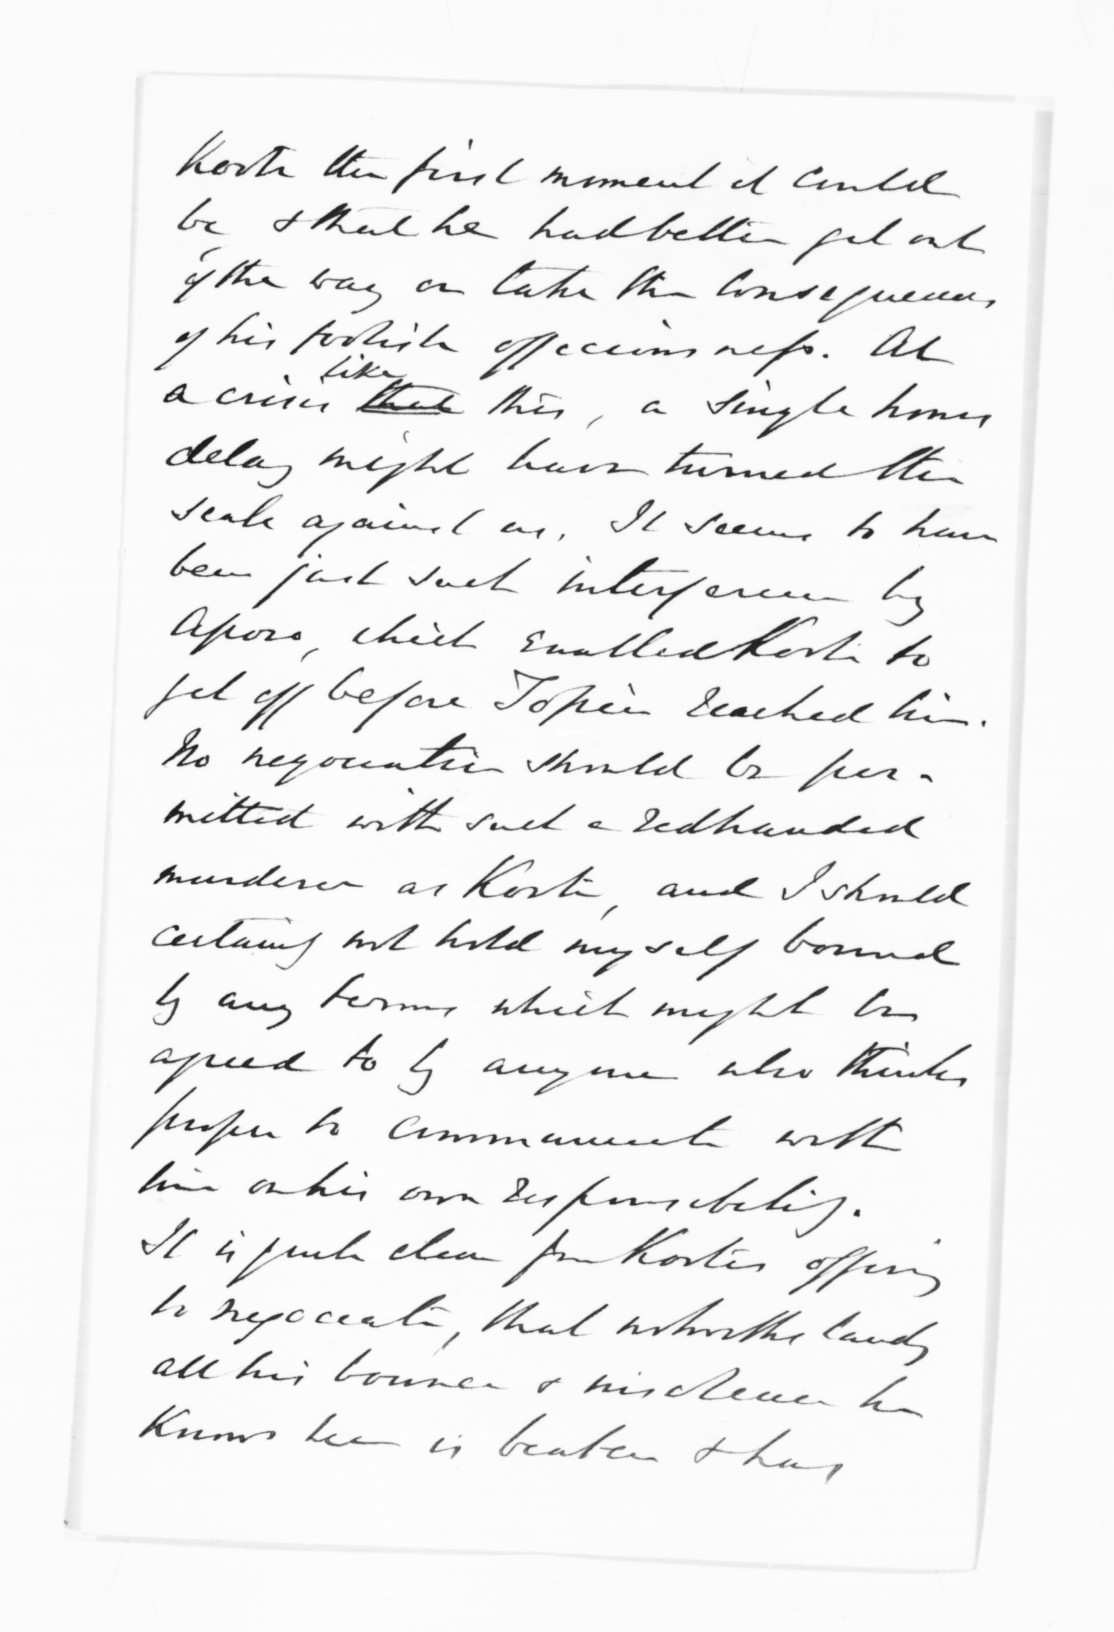 Kooti the first moment it could
be, & that he had better get out
of the way or take the consequences
of his foolish officiousness. At
a crisis like ~~that~~ this, a single hours
delay might have turned the
scale against us. It seems to have
been just such interference by
Aporo, which enabled Kooti to
get off before Topia reached him.
No negociation should be per-
mitted with such a redhanded
murderer as Kooti, and I should
certainly not hold myself bound
by any terms which might be
agreed to by anyone who thinks
proper to communicate with
him on his own responsibility.
It is quite clear from Kooti's offering
to negociate, that notwithstanding
all his bounce & insolence he
knows he is beaten & has